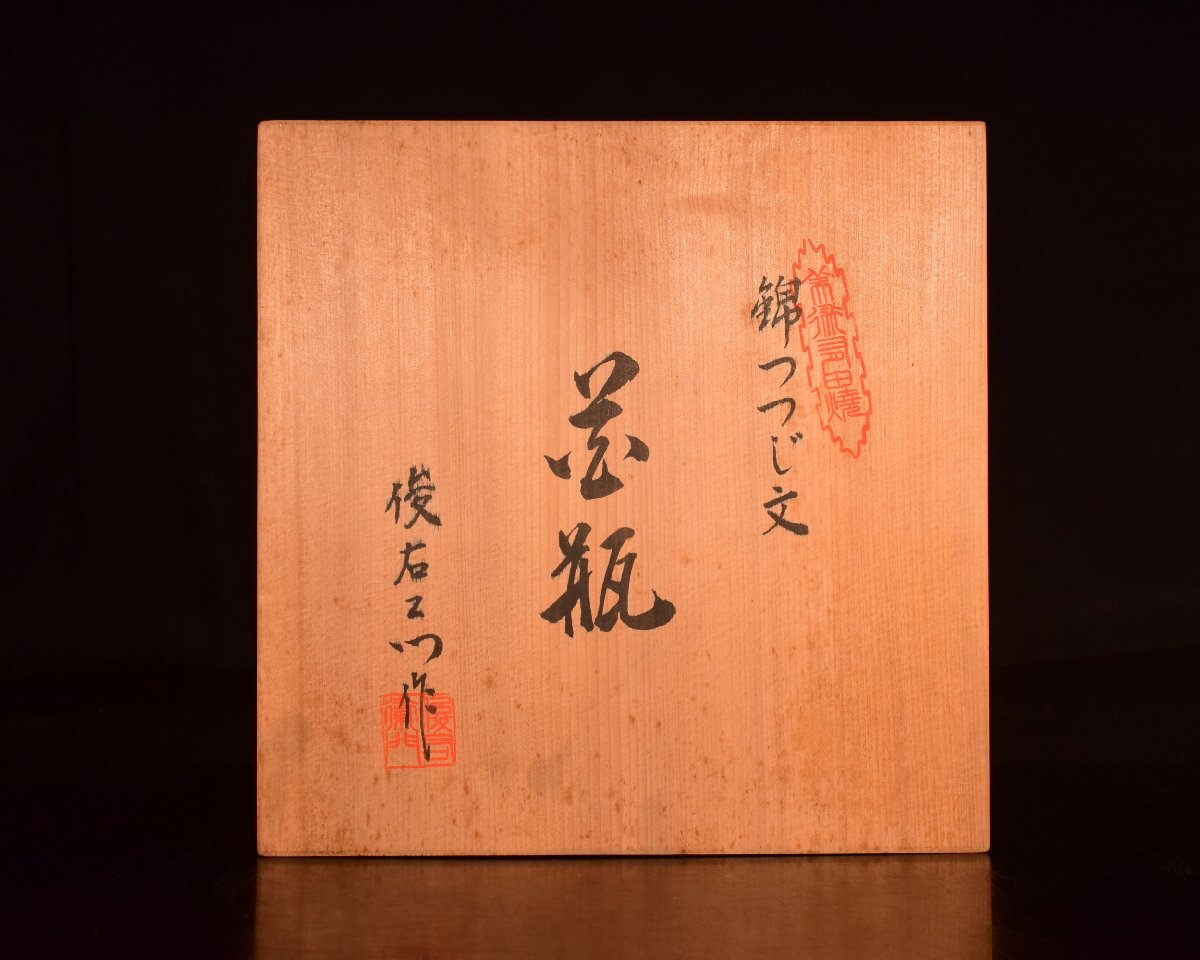 美術有田焼
錦つつじ文
花瓶
俊右エ門作
俊右衛門